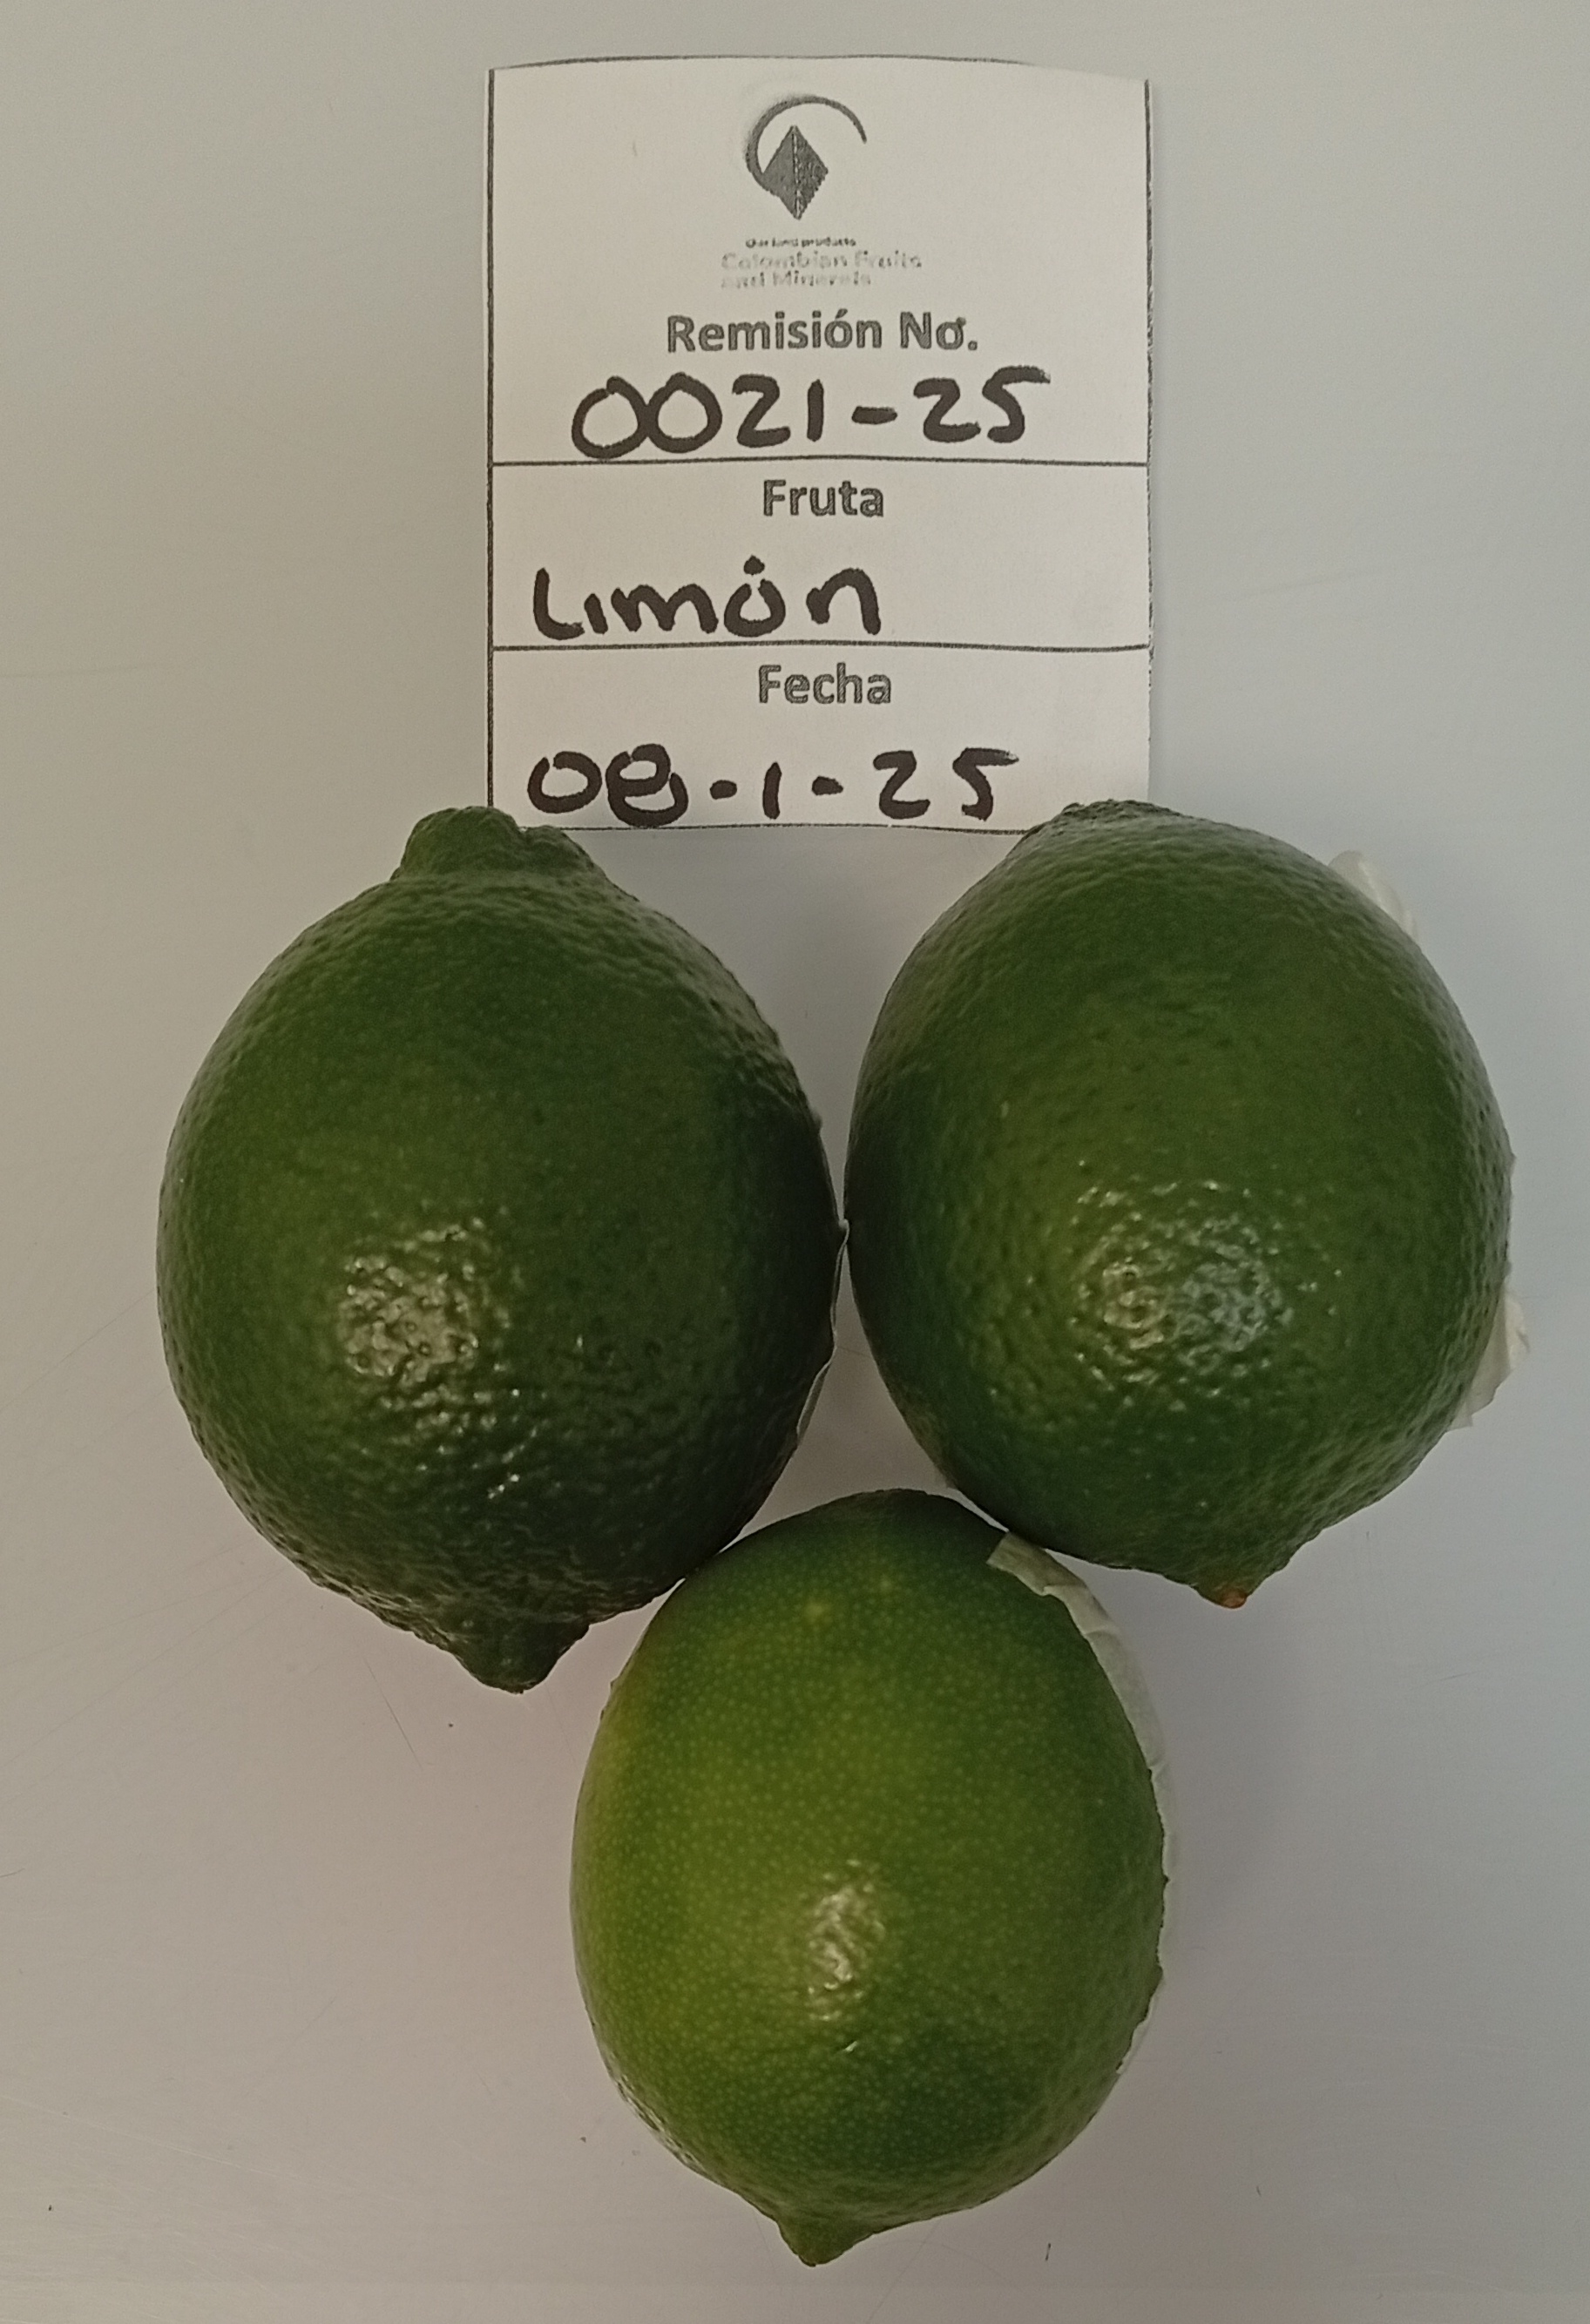 Our land products
Colombian Fruits
and Minerals
Remisión No.
0021-25
Fruta
Limón
Fecha
08-1-25